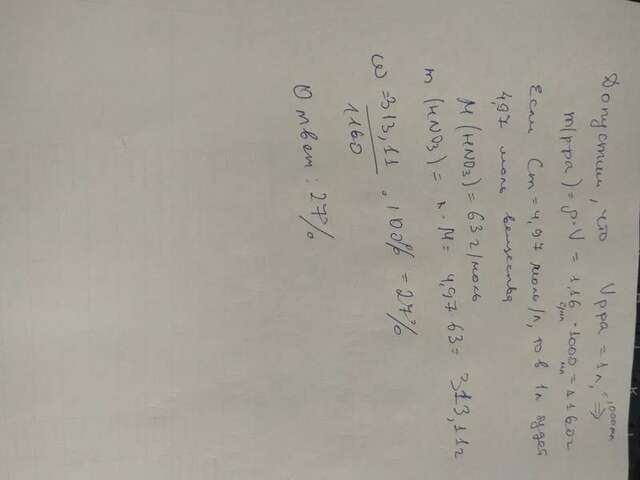 Допустим, что Vрра = 1л, (1000 мл) =>
m(рра) = ρ·V = 1,16 г/мл · 1000 мл = 1160г
Если Cm = 4,97 моль/л, то в 1л будет
4,97 моль вещества
M (HNO₃) = 63 г/моль
m (HNO₃) = n · M = 4,97·63 = 313,11г
ω = 313,11 / 1160 · 100% = 27%
Ответ: 27%